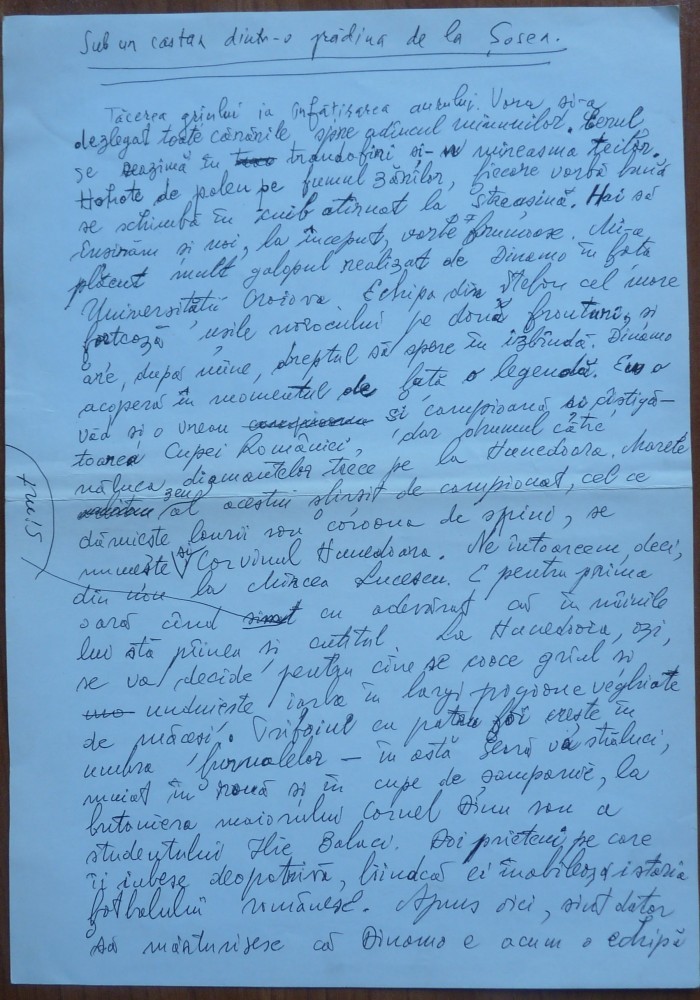 Sub un castan dintr-o grădină de la Șosea.
Tăcerea grîului ia înfățișarea aurului. Vara și-a
dezlegat toate cămările spre adîncul minunilor. Cerul
se reazimă în trandafiri și-n mireasma teilor.
Hohote de polen pe fumul zărilor, fiecare vorbă bună
se schimbă în cuib atîrnat la streașină. Hai să
înșirăm și noi, la început, vorbe frumoase. Mi-a
plăcut mult galopul realizat de Dinamo în fața
Universității Craiova. Echipa din Ștefan cel Mare
forțează ușile norocului pe două fronturi, și
are, după mine, dreptul să spere în izbîndă. Dinamo
acoperă în momentul de față o legendă. Eu o
văd și o vreau și campioană și cîștigă-
toarea Cupei României, dar drumul către
năluca diamantelor trece pe la Hunedoara. Marele
zeu al acestui sfîrșit de campionat, cel ce
dăruiește laurii sau coroana de spini, se
numește Corvinul Hunedoara. Ne întoarcem, deci,
din nou la Mircea Lucescu. E pentru prima
oară cînd simt cu adevărat că în mîinile
lui stă pîinea și cuțitul. La Hunedoara, azi,
se va decide pentru cine se coace grîul și
unduiește iarba în largi pogoane vegheate
de măceși. Trifoiul cu patru foi crește în
umbra furnalelor – în astă seară va străluci,
muiat în rouă și în cupe de șampanie, la
butoniera maiorului Cornel Dinu sau a
studentului Ilie Balaci. Doi prieteni pe care
îi iubesc deopotrivă, fiindcă ei înnobilează istoria
fotbalului românesc. Ajuns aici, sînt dator
să mărturisesc că Dinamo e acum o echipă